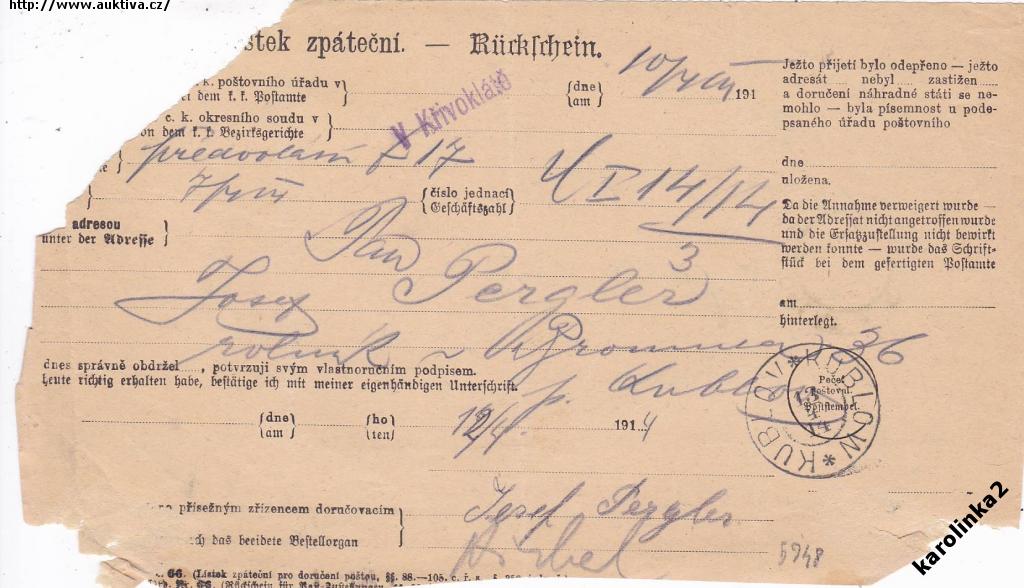 http://www.auktiva.cz/
stek zpáteční. — Rückschein.
k. poštovního úřadu v
ei dem k. k. Postamte
V Křivoklátě
dne
am
191
c. k. okresního soudu v
von dem k. k. Bezirksgerichte
předvolání 17
číslo jednací
Geschäftszahl
U I 14/14
3
adresou
unter der Adresse
Pan
Josef Pergler
rolník v 36
p. Kublov
dnes správně obdržel , potvrzuji svým vlastnoručním podpisem.
heute richtig erhalten habe, bestätige ich mit meiner eigenhändigen Unterschrift.
dne
am
ho
ten
12/4 1914
Josef Pergler
přísežným zřízencem doručovacím
ch das beeidete Bestellorgan
5948
66. (Lístek zpáteční pro doručení poštou, §§. 88.—103. c. ř. s.
Ježto přijetí bylo odepřeno — ježto
adresát nebyl zastižen
a doručení náhradné státi se ne-
mohlo — byla písemnost u pode-
psaného úřadu poštovního
dne
uložena.
Da die Annahme verweigert wurde —
da der Adressat nicht angetroffen wurde
und die Ersatzzustellung nicht bewirkt
werden konnte — wurde das Schrift-
stück bei dem gefertigten Postamte
am
hinterlegt.
KUBLOV * KUBLOW *
Pečeť
poštovní.
Poststempel.
13
14
karolinka2